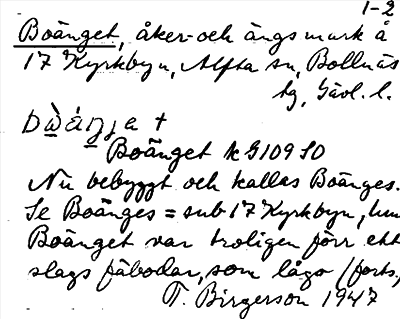 1-2
Boänget, åker- och ängsmark å
17 Kyrkbyn, Alfta sn, Bollnäs
tg, Gävl. l.
bẁáŋja +
Boänget k G109 SO
Nu bebyggt och kallas Boänges.
Se Boänges = sub 17 Kyrkbyn, hm
Boänget var troligen förr ett
slags fäbodar, som lågo (forts.)
T. Birgerson 1947